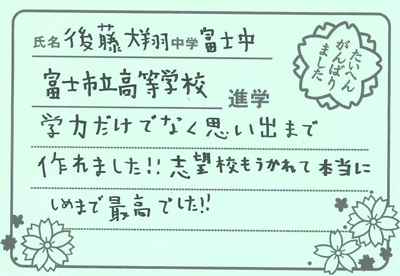 氏名 後藤大翔 中学 富士中
富士市立高等学校 進学
たいへん
がんばり
ました
学力だけでなく思い出まで
作れました!!志望校もうかれて本当に
しめまで最高でした!!